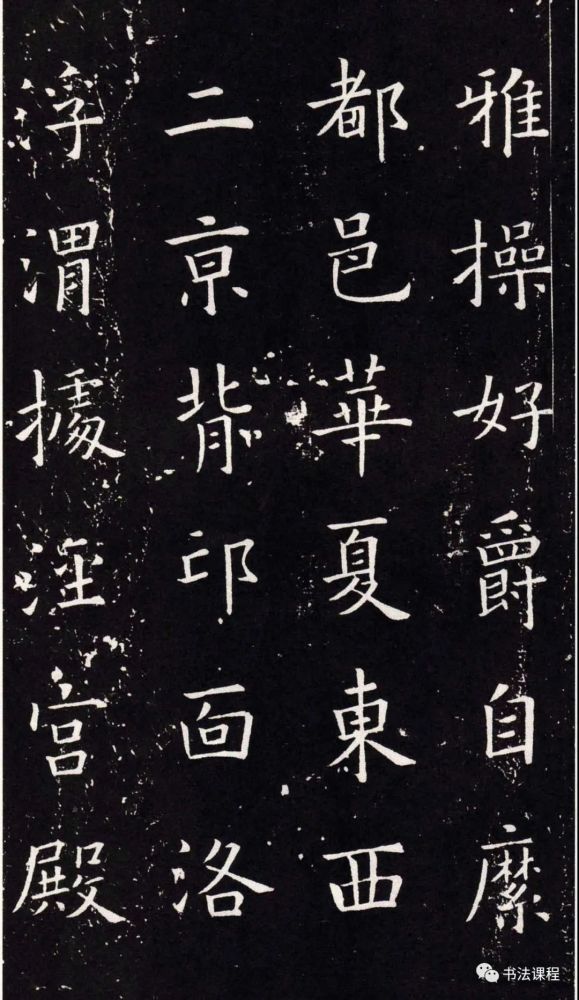 雅操好爵自縻
都邑華夏東西
二京背邙面洛
浮渭據涇宮殿
书法课程